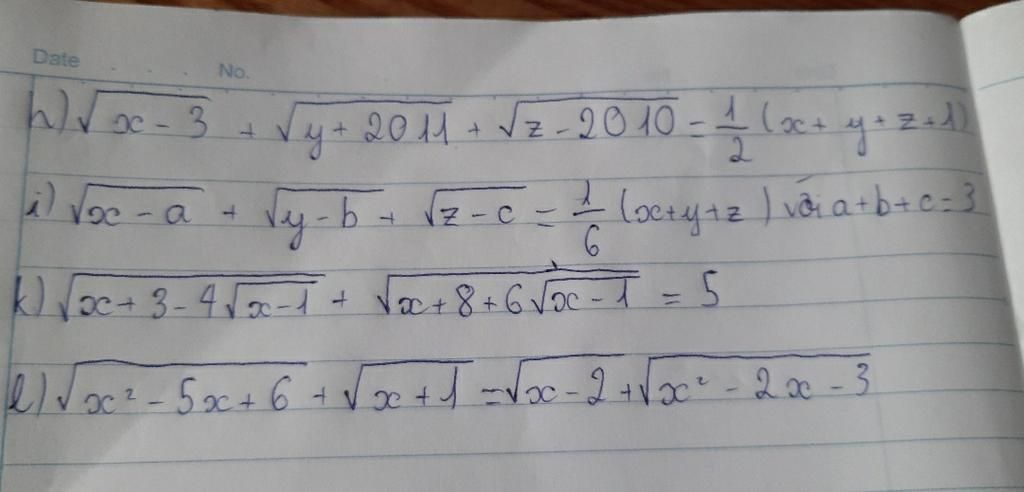 Date No.
h) √(x - 3) + √(y + 2011) + √(z - 2010) = 1/2 (x + y + z + 1)
i) √(x - a) + √(y - b) + √(z - c) = 1/6 (x+y+z) với a+b+c=3
k) √(x + 3 - 4√(x-1)) + √(x+8+6√(x-1)) = 5
l) √(x² - 5x + 6) + √(x+1) = √(x-2) + √(x² - 2x - 3)